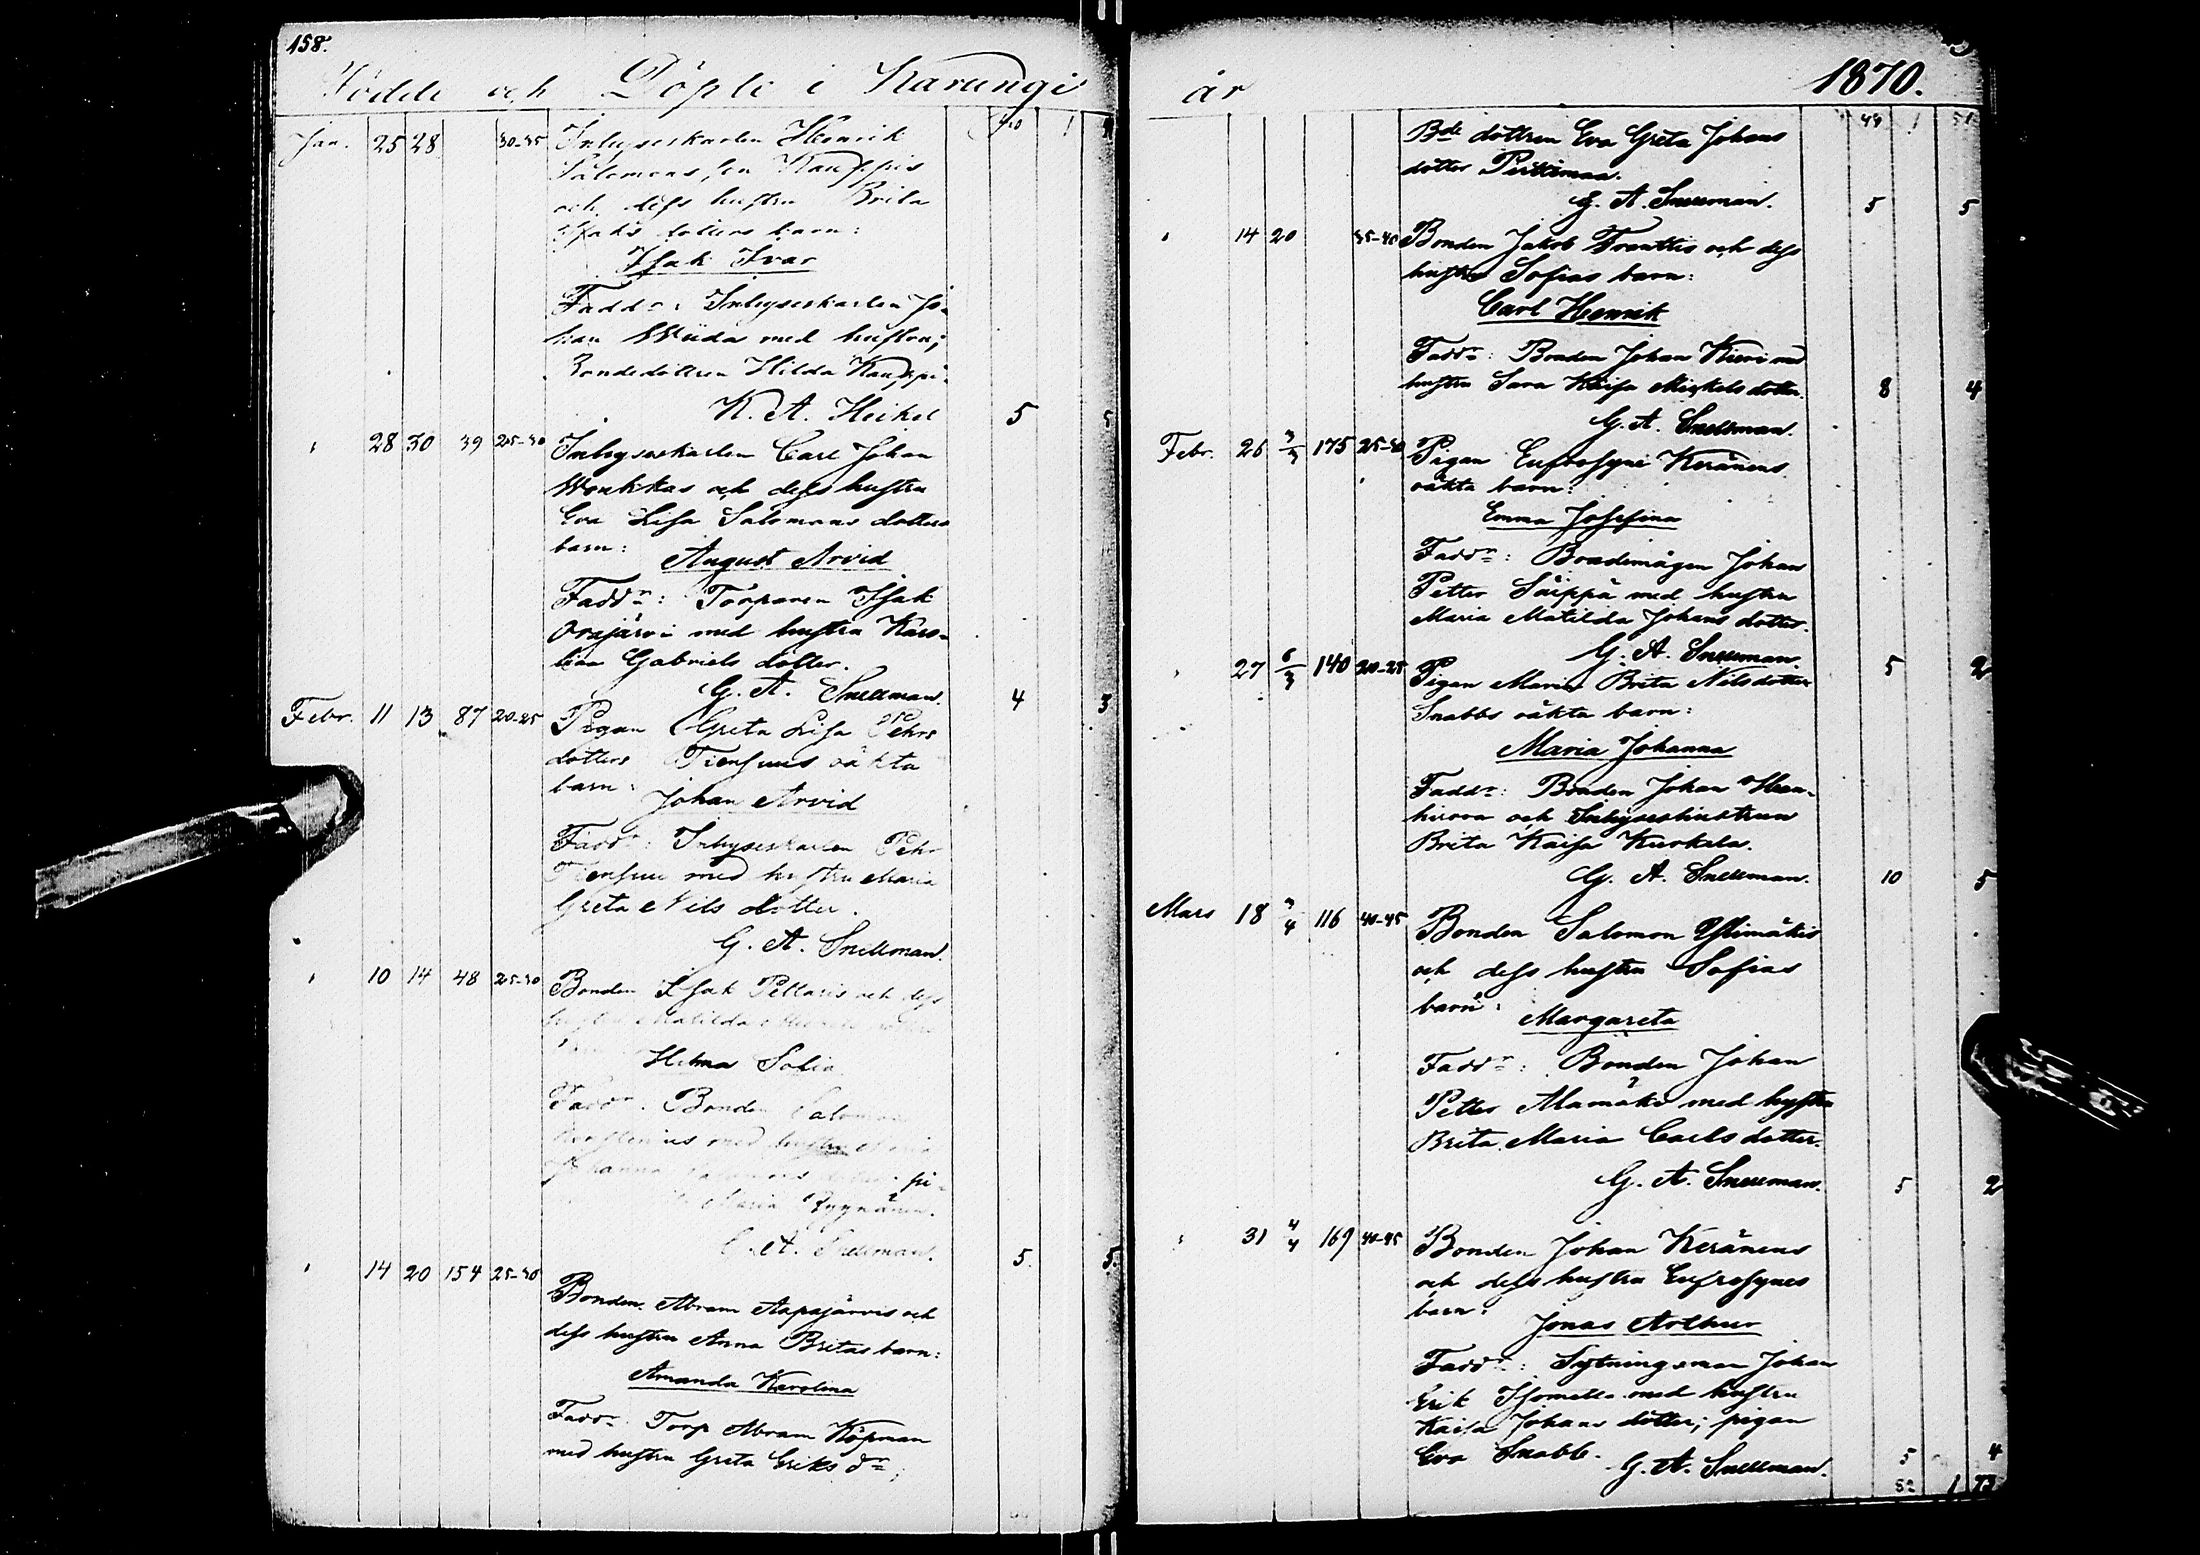 158.
Födde och Döpte i Karungi
Jan. 25 28 30-35 Inhyseskarlen Henrik
Salomonsson Kauppis
och dess hustru Brita
Isaks dotters barn:
Isak Ivar
Faddr: Inhyseskarlen Jo-
han Wiida med hustru;
Bondedottren Hilda Kauppi.
K. A. Heikel 5 5
" 28 30 39 25-30 Inhyseskarlen Carl Johan
och dess hustru
Eva Lisa Salomons dotters
barn:
August Arvid
Faddr: Torparen Isak
Orajärvi med hustru Karo-
lina Gabriels dotter.
G. A. Snellman. 4 3
Febr. 11 13 87 20-25 Pigan Greta Lisa Pehrs
dotters oäkta
barn:
Johan Arvid
Faddr: Inhyseskarlen Pehr
med hustru Maria
Greta Nils dotter.
G. A. Snellman.
" 10 14 48 25-30 Bonden Isak och dess
hustru Matilda
Hilma Sofia
Faddr: Bonden Salomon
med hustru
Johanna pi-
Maria
G. A. Snellman. 5. 5.
" 14 20 154 25-30
Bonden Abram Aapajärvis och
dess hustru Anna Britas barn:
Amanda Karolina
Faddr: Torp Abram Köpman
med hustru Greta Eriks dr;
år 1870.
Bde dottren Eva Greta Johans 44 1 51
dotter
G. A. Snellman. 5 5
" 14 20 35-40 Bonden Jakob Franttis och dess
hustru Sofias barn:
Carl Henrik
Faddr: Bonden Johan Kieri med
hustru Sara Kaisa Mickels dotter. 8 4
G. A. Snellman.
Febr. 26 3/3 175 25-30 Pigan Eufrosyne Keränens
oäkta barn:
Emma Josefina
Faddr: Bondemågen Johan
Petter Säippä med hustru
Maria Matilda Johans dotter.
G. A. Snellman. 5 2
" 27 6/3 140 20-25 Pigan Maria Brita Nilsdotter
Snabbs oäkta barn:
Maria Johanna
Faddr: Bonden Johan
och Inhyseshustrun
Brita Kaisa Kurkela.
G. A. Snellman. 10 5
Mars 18 3/4 116 40-45 Bonden Salomon Ylimäkis
och dess hustru Sofias
barn:
Margareta
Faddr: Bonden Johan
Petter Alamäki med hustru
Brita Maria Carls dotter.
G. A. Snellman. 5 2
" 31 4/4 169 40-45 Bonden Johan Keränens
och dess hustru Eufrosynes
barn:
Jonas Arthur
Faddr: Sytningsman Johan
Erik Isometsä med hustru
Kaisa Johans dotter; pigan
Eva Snabb. 5 4
G. A. Snellman.
52 1 73